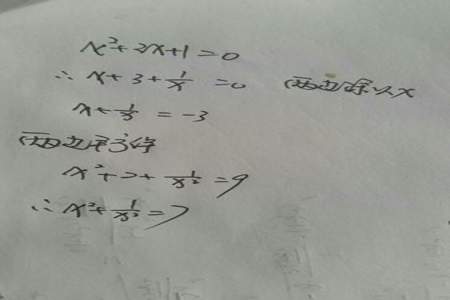 x²+3x+1=0
∴ x+3+1/x =0 (两边除以x
x+1/x = -3
(两边平方得
x²+2+1/x²=9
∴ x²+1/x²=7